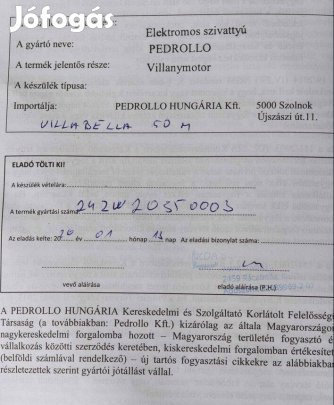 Jófogás
Elektromos szivattyú
A gyártó neve: PEDROLLO
A termék jelentős része: Villanymotor
A készülék típusa:
Importálja: PEDROLLO HUNGÁRIA Kft. 5000 Szolnok
Újszászi út.11.
VILLABELLA 50 M
ELADÓ TÖLTI KI!
A készülék vételára:
A termék gyártási száma: 24ZW20350003
Az eladás kelte: 2020 év 01 hónap 13 nap Az eladási bizonylat száma:
vevő aláírása eladó aláírása (P.H.)
A PEDROLLO HUNGÁRIA Kereskedelmi és Szolgáltató Korlátolt Felelősségű
Társaság (a továbbiakban: Pedrollo Kft.) kizárólag az általa Magyarországon
nagykereskedelmi forgalomba hozott – Magyarország területén fogyasztó és
vállalkozás közötti szerződés keretében, kiskereskedelmi forgalomban értékesített
(belföldi számlával rendelkező) – új tartós fogyasztási cikkekre az alábbiakban
részletezettek szerint gyártói jótállást vállal.